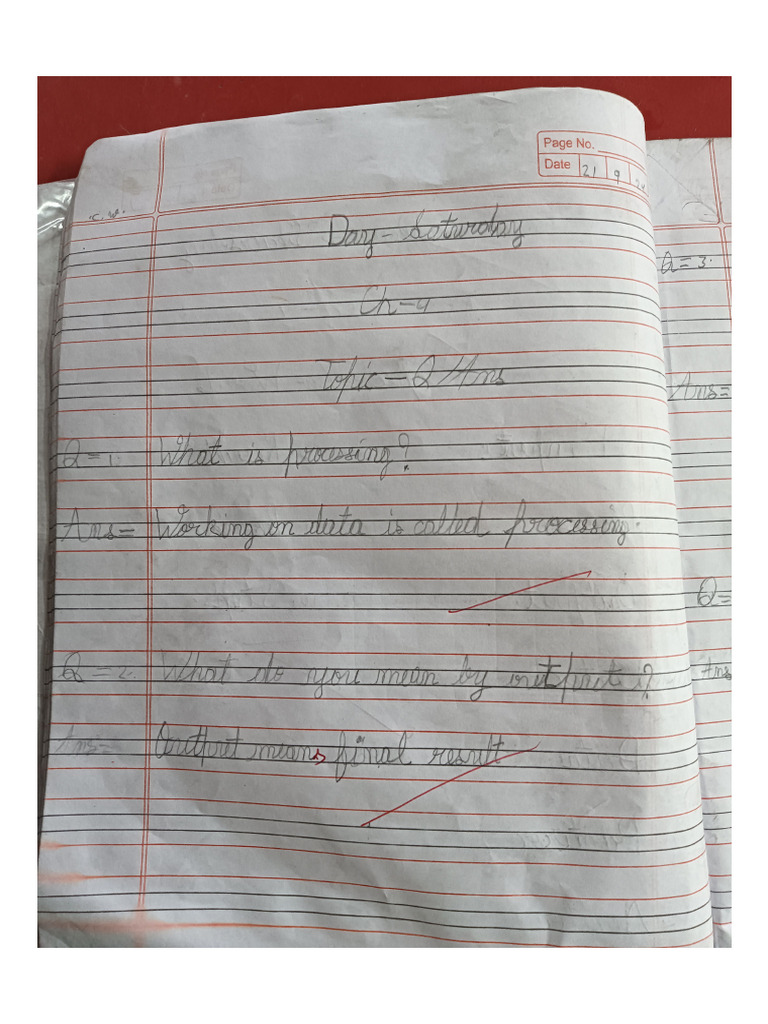 Page No.
Date 21 9 24
C.W.
Day - Saturday
Ch-4
Topic - Q/Ans
Q=1. What is processing?
Ans= Working on data is called processing.
Q=2. What do you mean by output?
Ans= Output means final result
Q=3.
Ans=
Q=
Ans